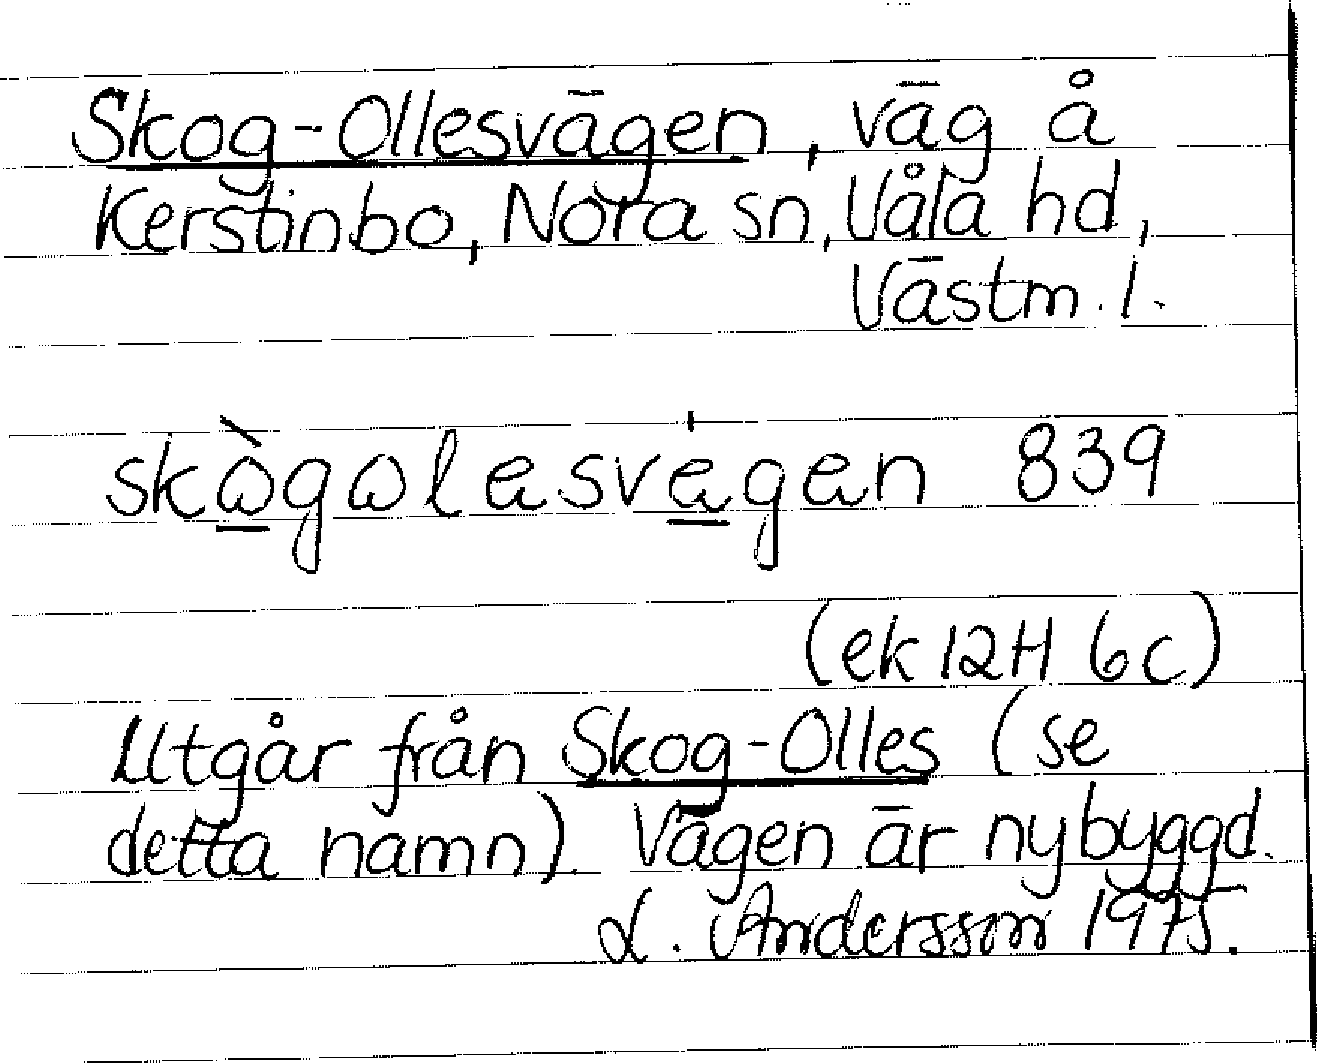 Skog-Ollesvägen, väg å
Kerstinbo, Nora sn, Våla hd,
Västm. l.
skògolesvégen 839
(ek 12H 6c)
Utgår från Skog-Olles (se
detta namn). Vägen är nybyggd.
L. Andersson 1975.